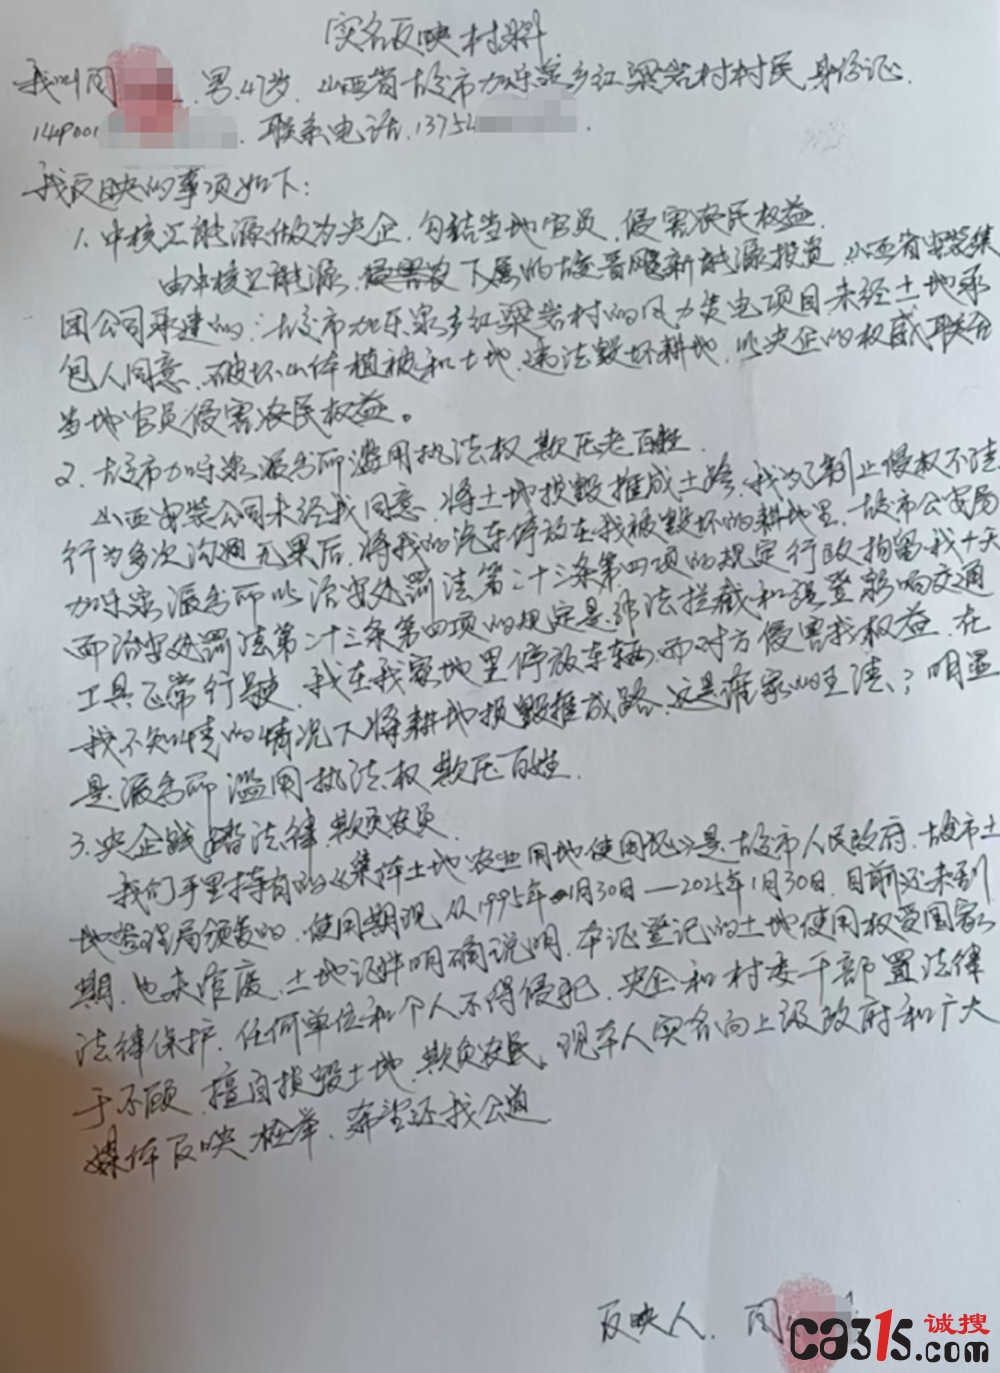 实名反映材料
我叫闫 男.47岁. 山西省古交市加乐泉乡红梁岩村村民.身份证.
142001 . 联系电话.13754 .
我反映的事项如下:
1.中核汇能源做为央企.勾结当地官员.侵害农民权益.
由中核汇能源. 下属的古交晋飚新能源投资.山西省安装集
团公司承建的:古交市加乐泉乡红梁岩村的风力发电项目未经土地承
包人同意.破坏山体植被和土地.违法毁坏耕地.以央企的权威联合
当地官员侵害农民权益。
2.古交市加乐泉派出所滥用执法权欺压老百姓.
山西安装公司未经我同意.将土地损毁推成土路.我为了制止侵权不法
行为多次沟通无果后.将我的汽车停放在我被毁坏的耕地里.古交市公安局
加乐泉派出所以治安处罚法第二十三条第四项的规定行政拘留我十天
而治安处罚法第二十三条第四项的规定是非法拦截和强登影响交通
工具正常行驶.我在我家地里停放车辆.而对方侵害我权益.在
我不知情的情况下将耕地损毁推成路.这是谁家的王法?明显
是派出所滥用执法权欺压百姓.
3.央企践踏法律欺负农民.
我们手里持有的《集体土地农业用地使用证》是古交市人民政府.古交市土
地管理局颁发的.使用期现从1995年1月30日—2025年1月30日.目前还未到
期.也未作废.土地证件明确说明.本证登记的土地使用权受国家
法律保护.任何单位和个人不得侵犯.央企和村委干部置法律
于不顾.擅自损毁土地.欺负农民.现本人实名向上级政府和广大
媒体反映检举.希望还我公道
反映人. 闫
ca315.com 诚搜